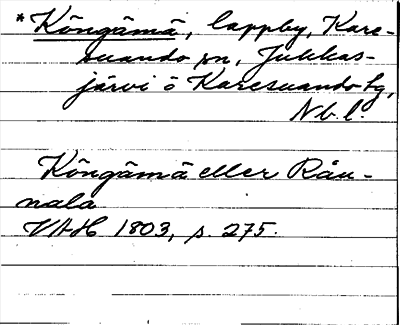 *Köngämä, lappby, Kare-
suando sn, Jukkas-
järvi o Karesuando tg,
Nb. l.
Köngämä eller Rån-
nala
VAH 1803, s. 275.